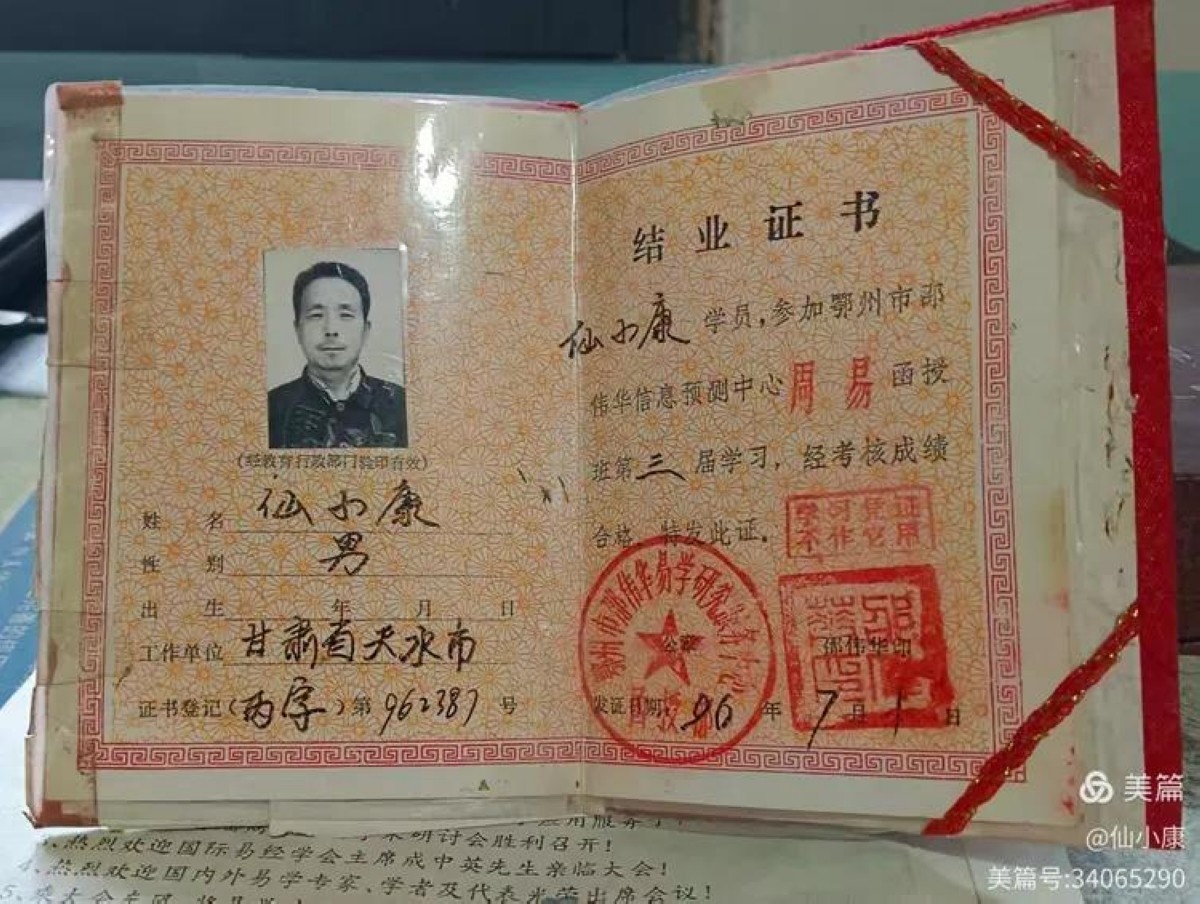 (经教育行政部门验印有效)
姓 名 仙小康
性 别 男
出 生 年 月 日
工作单位 甘肃省天水市
证书登记(内字)第962387号
结业证书
仙小康 学员,参加鄂州市邵
伟华信息预测中心周易函授
班第三届学习,经考核成绩
合格,特发此证。
学习凭证
不作它用
鄂州市邵伟华易学研究服务中心
公章
邵伟华印
发证日期:96年7月1日
学术研讨会胜利召开!
热烈欢迎国际易经学会主席成中英先生亲临大会!
4、热烈欢迎国内外易学专家、学者及代表光荣出席会议!
5、
美篇
@仙小康
美篇号:34065290